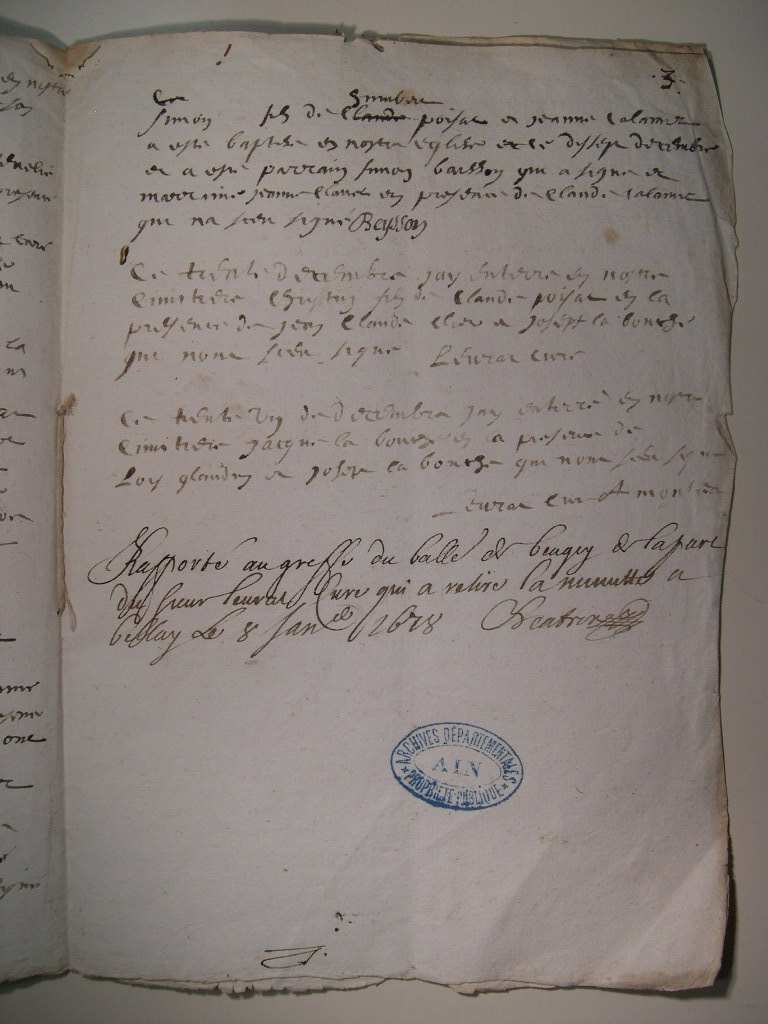 3.
Ce humber
simon fils de Claude poisat et jeanne calamer
a este baptise en nostre eglise et ce dissept decembre
et a este parrain simon baisson qui a signe et
marraine jeanne Claret en presence de Claude calamer
qui na sceu signe Beysson
Ce trente decembre jay enterre en nostre
cimitiere Christin fils de Claude poisat en la
presence de jean Claude et joseph la bouche
qui nont sceu signe Leurat cure
Ce trente un de decembre jay enterre en nostre
cimitiere jacque la bouche en la presence de
Loys et joseph la bouche qui nont sceu signe
Leurat cure
Rapporté au greffe du balle de beugey de la part
du sieur leurat Cure qui a retiré la minutte a
bellay Le 8 Janer 1678
ARCHIVES DÉPARTEMENTALES
AIN
PROPRIÉTÉ PUBLIQUE